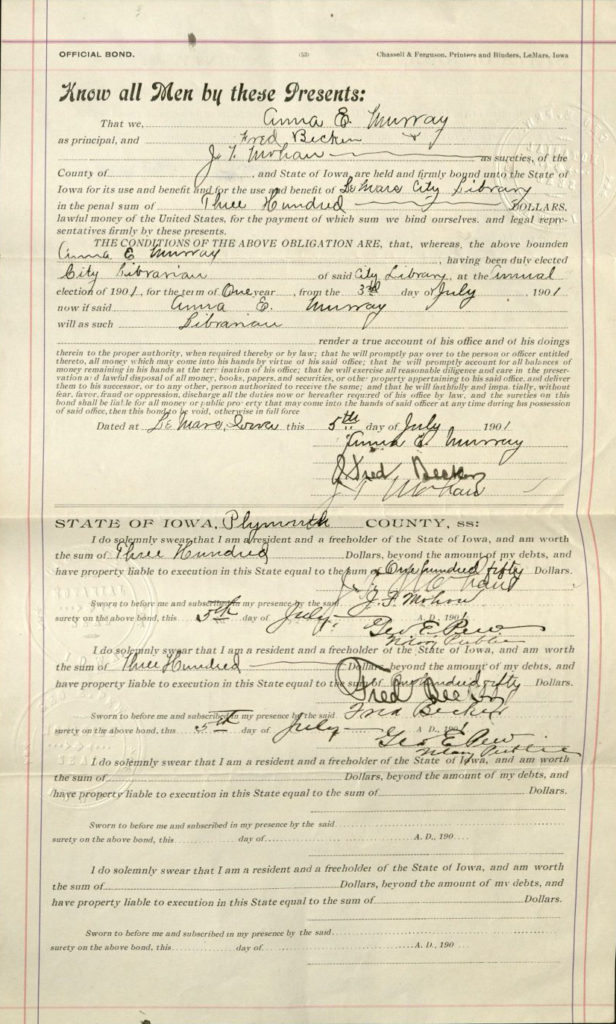 OFFICIAL BOND. (53) Chassell & Ferguson, Printers and Binders, LeMars, Iowa
Know all Men by these Presents:
That we, Anna E. Murray
as principal, and Fred Becker &
J. T. Mohan as sureties, of the
County of , and State of Iowa are held and firmly bound unto the State of
Iowa for its use and benefit and for the use and benefit of Le Mars City Library
in the penal sum of Three Hundred DOLLARS,
lawful money of the United States, for the payment of which sum we bind ourselves. and legal repre-
sentatives firmly by these presents.
THE CONDITIONS OF THE ABOVE OBLIGATION ARE, that, whereas, the above bounden
Anna E Murray , having been duly elected
City Librarian of said City Library, at the Annual
election of 1901, for the term of One year , from the 3rd day of July , 1901
now if said Anna E. Murray
will as such Librarian
render a true account of his office and of his doings
therein to the proper authority, when required thereby or by law; that he will promptly pay over to the person or officer entitled
thereto, all money which may come into his hands by virtue of his said office; that he will promptly account for all balances of
money remaining in his hands at the ter ination of his office; that he will exercise all reasonable diligence and care in the preser-
vation a d lawful disposal of all money, books, papers, and securities, or othe property appertaining to his said office, and deliver
them to his successor, or to any other, person authorized to receive the same; and that he will faithfully and impa tially, without
fear, favor, fraud or oppression, discharge all the duties now or hereafter required of his office by law, and the sureties on this
bond shall be liable for all money or public pro erty that may come into the hands of said officer at any time during his possession
of said office, then this bond to be void, otherwise in full force
Dated at Le Mars, Iowa this 5th day of July 1901
Anna E. Murray
Fred Becker
J. T. Mohan
STATE OF IOWA, Plymouth COUNTY, ss:
I do solemnly swear that I am a resident and a freeholder of the State of Iowa, and am worth
the sum of Three Hundred Dollars, beyond the amount of my debts, and
have property liable to execution in this State equal to the sum of One hundred fifty Dollars.
Sworn to before me and subscribed in my presence by the said J. T. Mohan
surety on the above bond, this 5th day of July A. D., 1901
Geo E. Pew
Notary Public
I do solemnly swear that I am a resident and a freeholder of the State of Iowa, and am worth
the sum of Three Hundred Dollars, beyond the amount of my debts, and
have property liable to execution in this State equal to the sum of One hundred fifty Dollars.
Fred Becker
Sworn to before me and subscribed in my presence by the said Fred Becker
surety on the above bond, this 5th day of July A. D., 1901
Geo E Pew
Notary Public
I do solemnly swear that I am a resident and a freeholder of the State of Iowa, and am worth
the sum of Dollars, beyond the amount of my debts, and
have property liable to execution in this State equal to the sum of Dollars.
Sworn to before me and subscribed in my presence by the said
surety on the above bond, this day of A. D., 190
I do solemnly swear that I am a resident and a freeholder of the State of Iowa, and am worth
the sum of Dollars, beyond the amount of my debts, and
have property liable to execution in this State equal to the sum of Dollars.
Sworn to before me and subscribed in my presence by the said
surety on the above bond, this day of A. D., 190